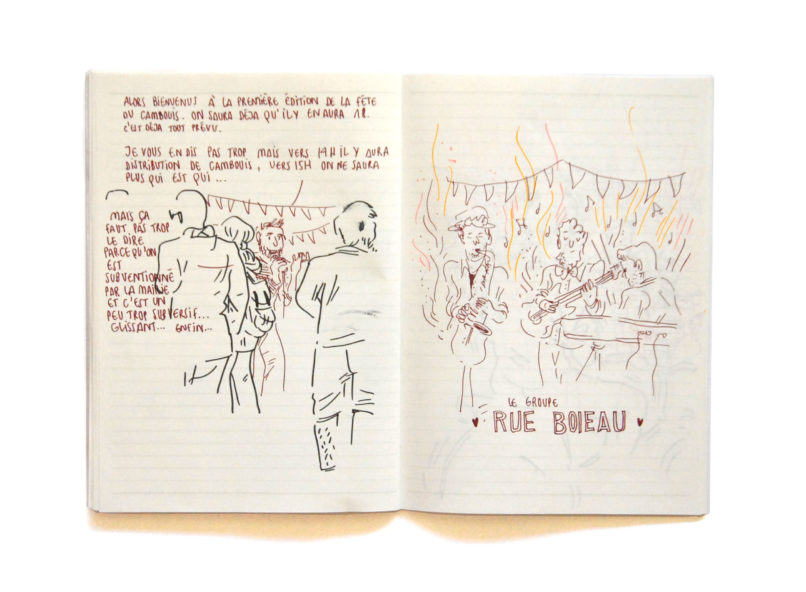 ALORS BIENVENUS À LA PREMIÈRE ÉDITION DE LA FÊTE
DU CAMBOUIS. ON SAURA DÉJA QU'IL Y EN AURA 12.
C'EST DÉJA TOUT PRÉVU.
JE VOUS EN DIS PAS TROP MAIS VERS 14H IL Y AURA
DISTRIBUTION DE CAMBOUIS, VERS 15H ON NE SAURA
PLUS QUI EST QUI ...
MAIS ÇA
FAUT PAS TROP
LE DIRE
PARCEQU'ON
EST
SUBVENTIONNÉ
PAR LA MAIRIE
ET C'EST UN
PEU TROP SUBVERSIF...
GLISSANT... ENFIN...
LE GROUPE
RUE BOIEAU